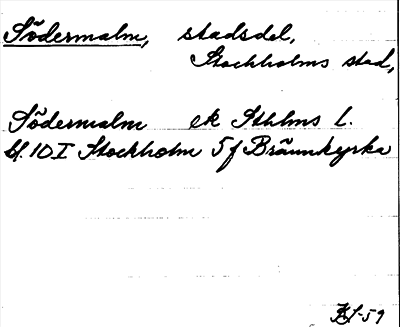 Södermalm, stadsdel,
Stockholms stad,
Södermalm ek Sthlms l.
bl. 10 I Stockholm 5 f Brännkyrka
-59